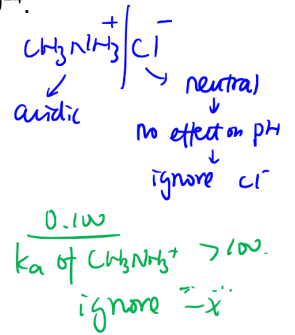 CH3NH3+ | Cl-
acidic
neutral
no effect on pH
ignore Cl-
0.100
Ka of CH3NH3+ >100.
ignore "-x"